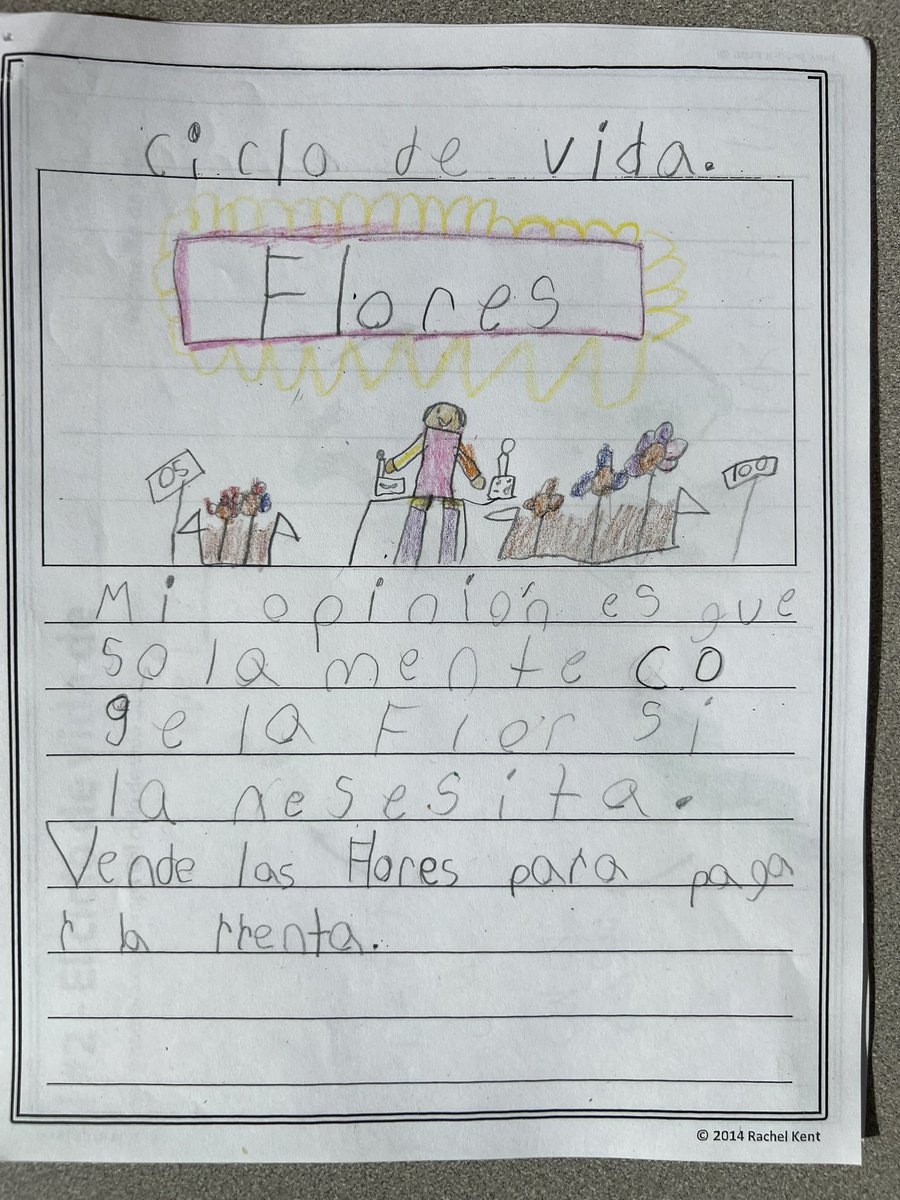 ciclo de vida.
Flores
05
100
Mi opinión es que
solamente co
ge la Flor si
la nesesita.
Vende las Flores para paga
r la rrenta.
© 2014 Rachel Kent